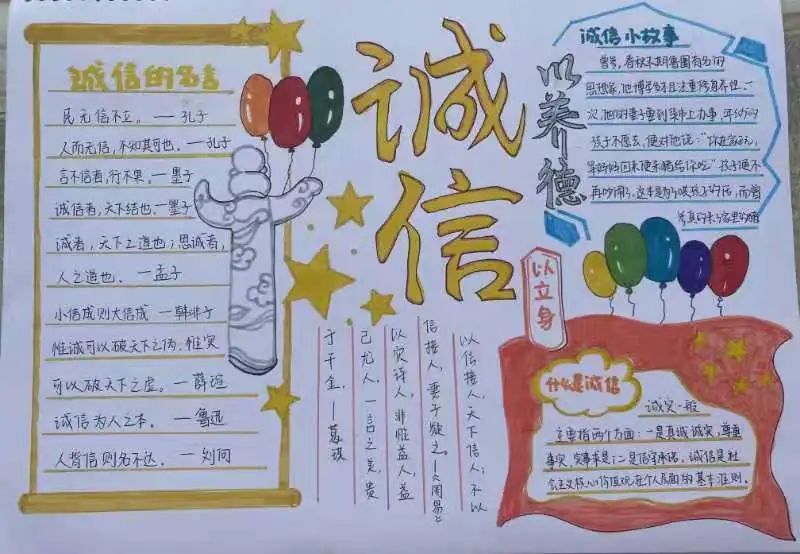 诚信的名言
民无信不立。—孔子
人而无信,不知其可也。—孔子
言不信者,行不果。—墨子
诚信者,天下结也。—墨子
诚者,天下之道也;思诚者,
人之道也。—孟子
小信成则大信成 —韩非子
惟诚可以破天下之伪,惟实
可以破天下之虚。—薛瑄
诚信为人之本。—鲁迅
人背信则名不达。—刘向
诚信
以养德
以立身
诚信小故事
曾子,春秋末期鲁国有名的
思想家,他博学多才且注重修身养性。一
次,他的妻子要到集市上办事,年幼的
孩子不愿去,便对他说:“你在家好好玩,
等妈妈回来便杀猪给你吃”孩子便不
再吵闹了。这本是为了哄孩子的话,而曾
以信接人,天下信人;不以
信接人,妻子疑之。—《周易》
以实待人,非惟益人,益
己尤人,一言之美,贵
于千金。—葛洪
什么是诚信
诚实一般
主要指两个方面:一是真诚诚实,尊重
事实,实事求是;二是信守承诺。诚信是社
会主义核心价值观在个人层面的基本准则。